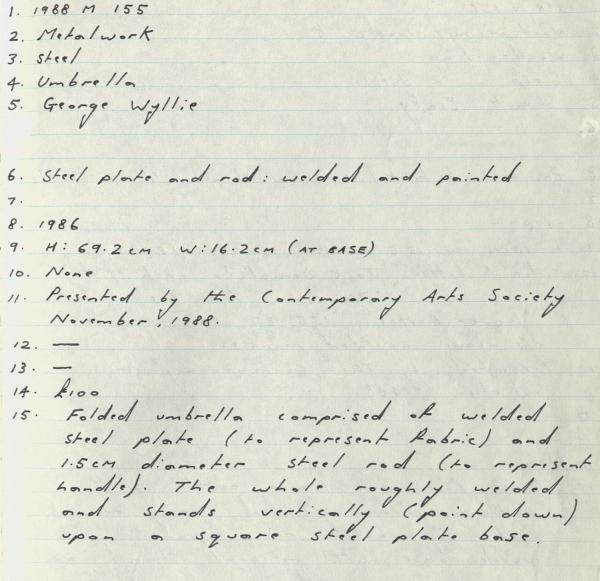 1. 1988 M 155
2. Metalwork
3. Steel
4. Umbrella
5. George Wyllie
6. Steel plate and rod: welded and painted
7.
8. 1986
9. H: 69.2cm W: 16.2cm (AT BASE)
10. None
11. Presented by the Contemporary Arts Society
November, 1988.
12. —
13. —
14. £100
15. Folded umbrella comprised of welded
steel plate (to represent fabric) and
1.5cm diameter steel rod (to represent
handle). The whole roughly welded
and stands vertically (point down)
upon a square steel plate base.